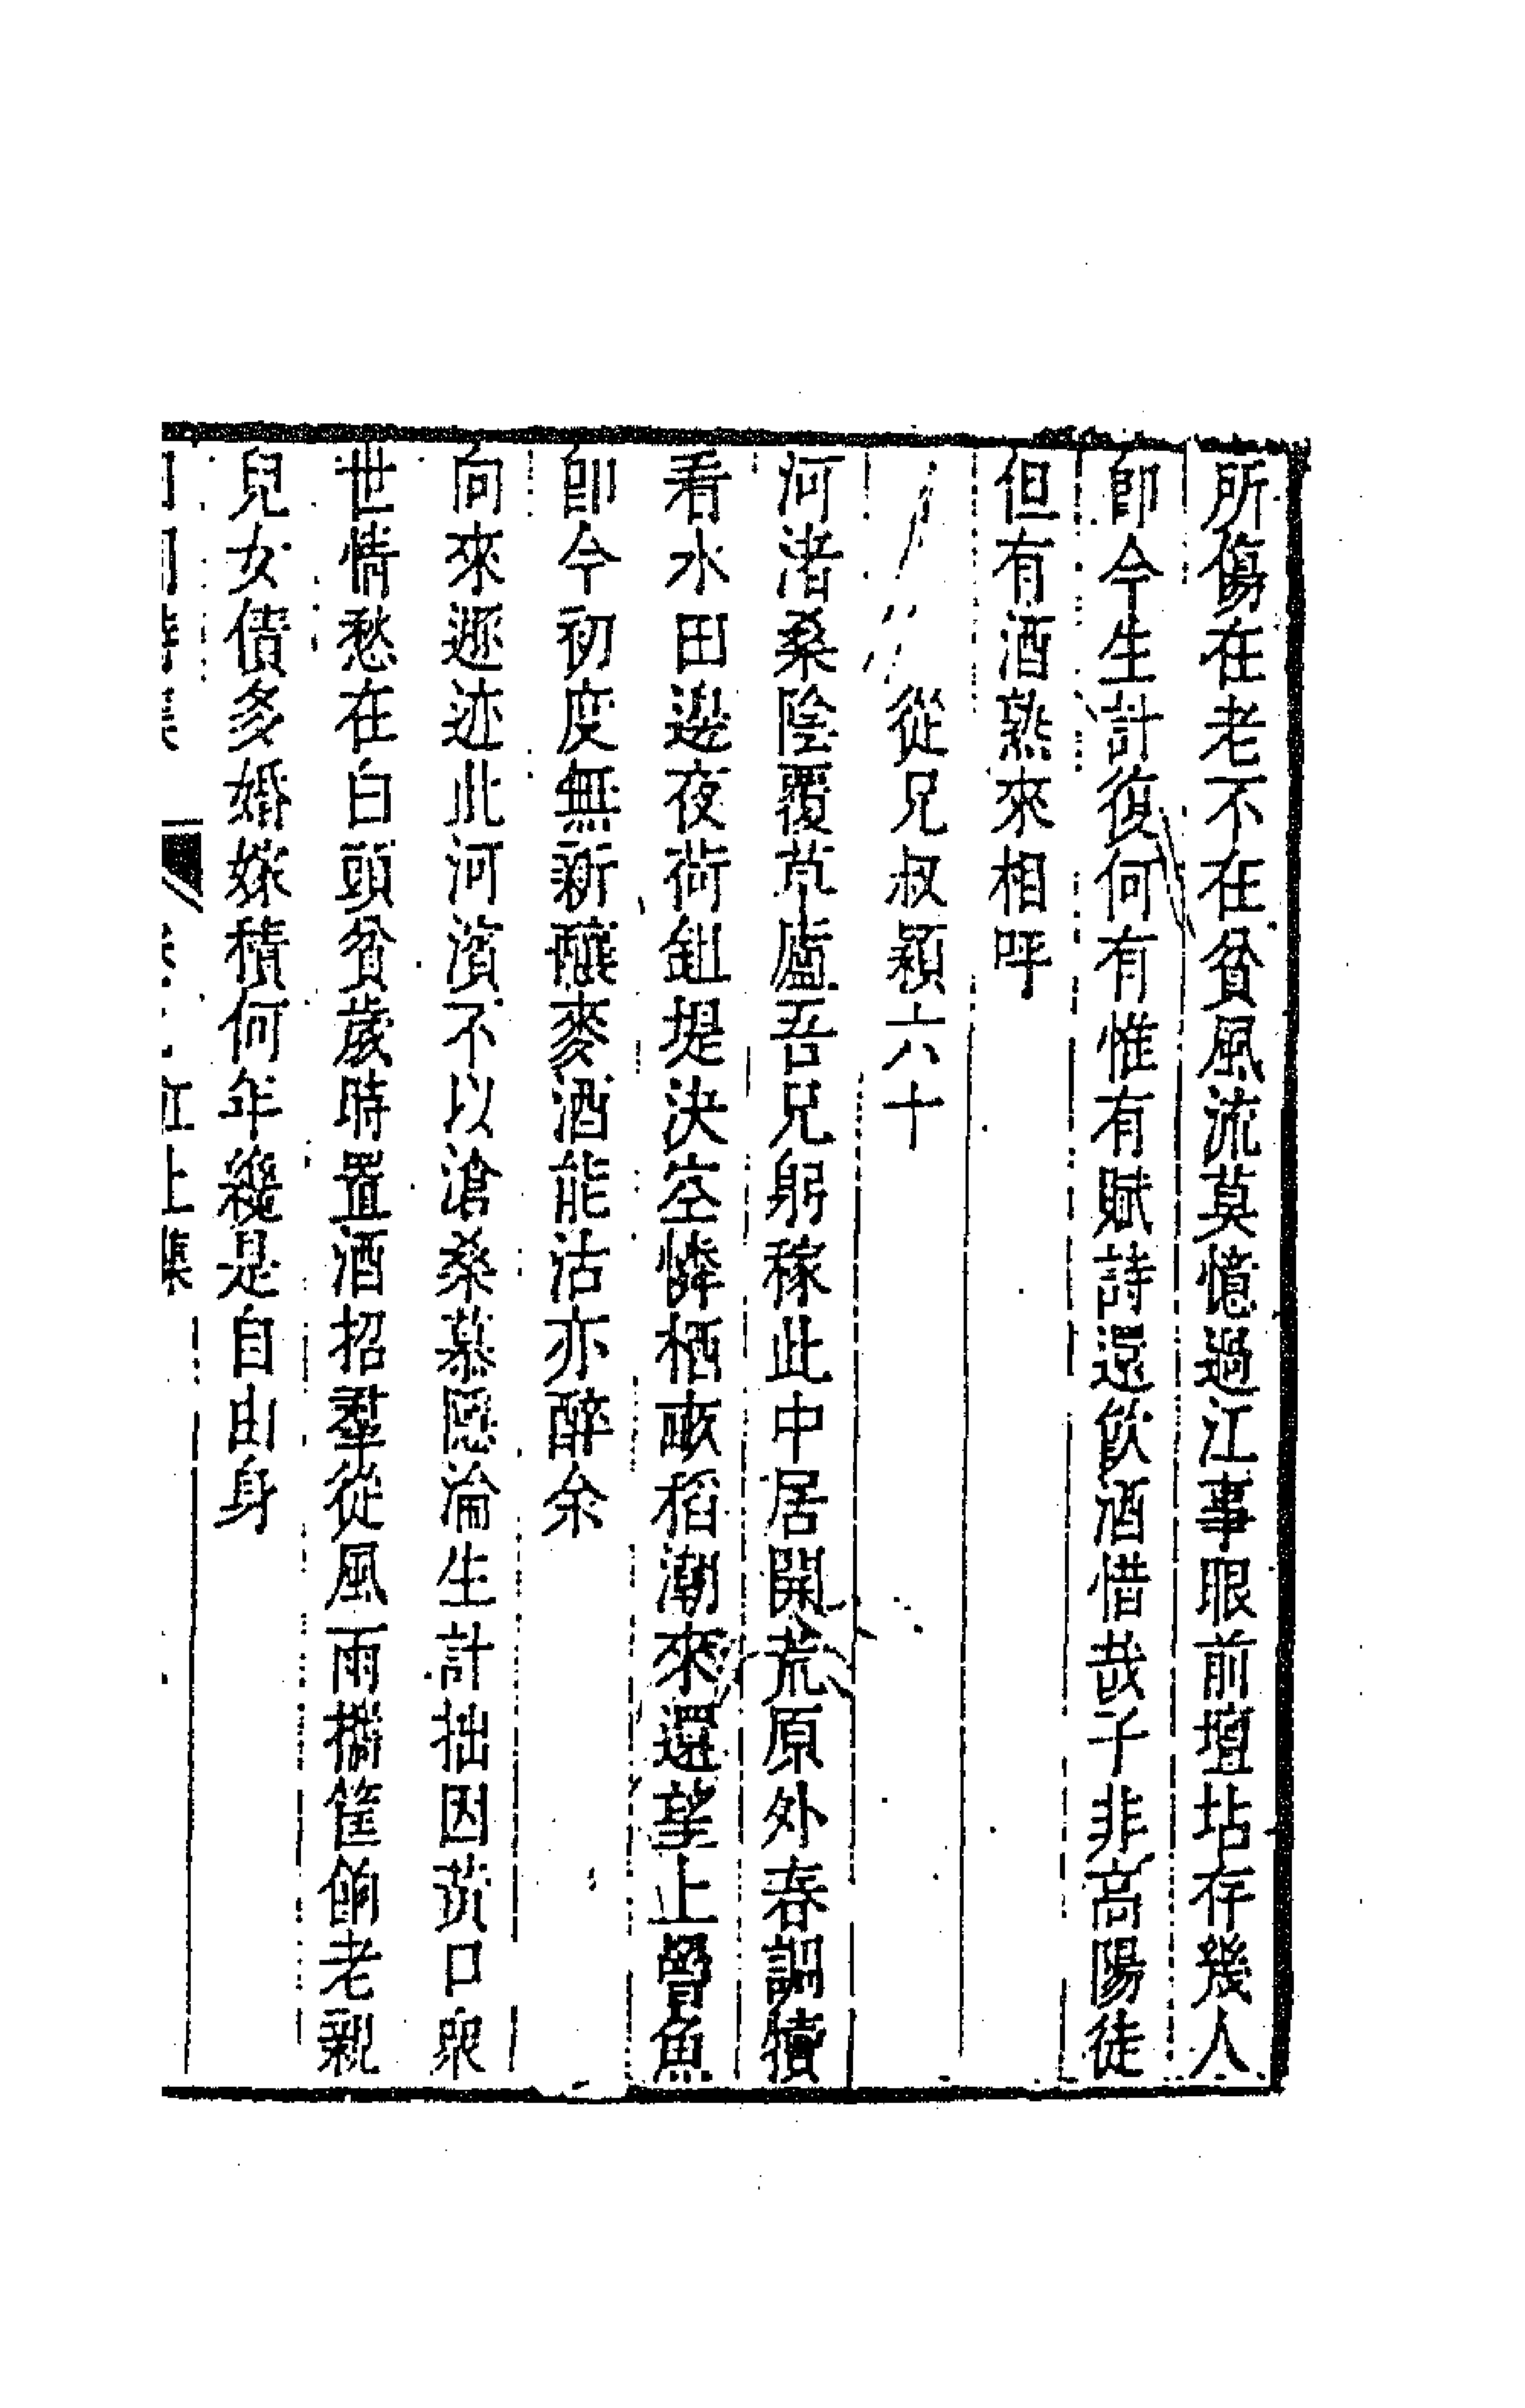 所傷在老不在貧風流莫憶過江事眼前壇坫存幾人
即今生計復何有惟有賦詩還飲酒惜哉子非高陽徒
但有酒熟來相呼
從兄叔穎六十
河渚桑陰覆草廬吾兄躬稼此中居開荒原外春調犢
看水田邊夜荷鉏堤決空憐栖畝稻潮來還望上罾魚
即今初度無新釀麥酒能沽亦醉余
向來遯迹此河濱不以滄桑慕隱淪生計拙因荒口眾
世情愁在白頭貧歲時置酒招羣從風雨攜筐餉老親
兒女債多婚嫁積何年纔是自由身
上集